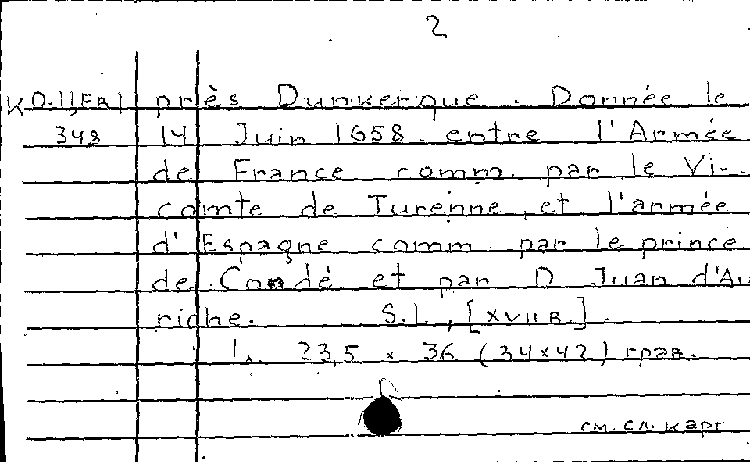 2
КО.11,Ев1 près Dunkerque. Donnée le
348 14 Juin 1658 entre l'Armée
de France comm. par le Vi-
comte de Turenne, et l'armée
d'Espagne comm par le prince
de Condé et par D Juan d'Au
riche. S.l., [XVII в.].
1 л. 23,5 × 36 (34×42) грав.
см. сл. карт